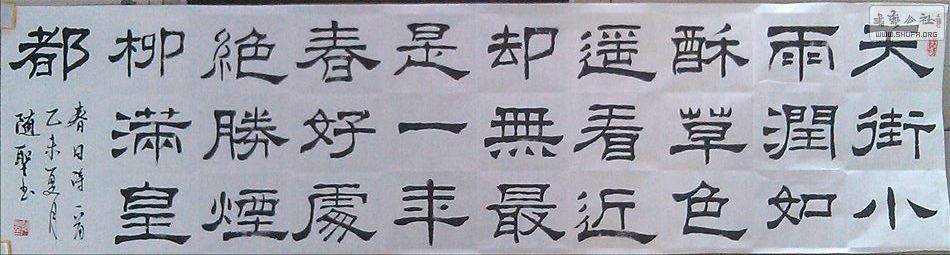 天街小
雨潤如
酥草色
遥看近
却無最
是一年
春好處
絕勝煙
柳滿皇
都
春日詩一首
乙未夏月
隨聖书
书艺公社
WWW.SHUFA.ORG